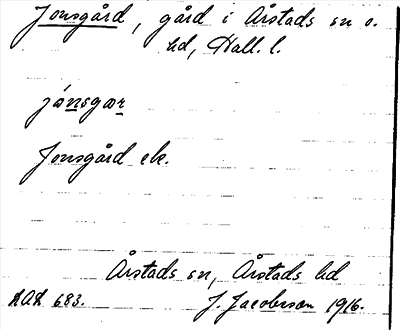 Jonsgård, gård i Årstads sn o.
hd, Hall. l.
jónsgær
Jonsgård ek.
Årstads sn, Årstads hd
J. Jacobsson 1916.